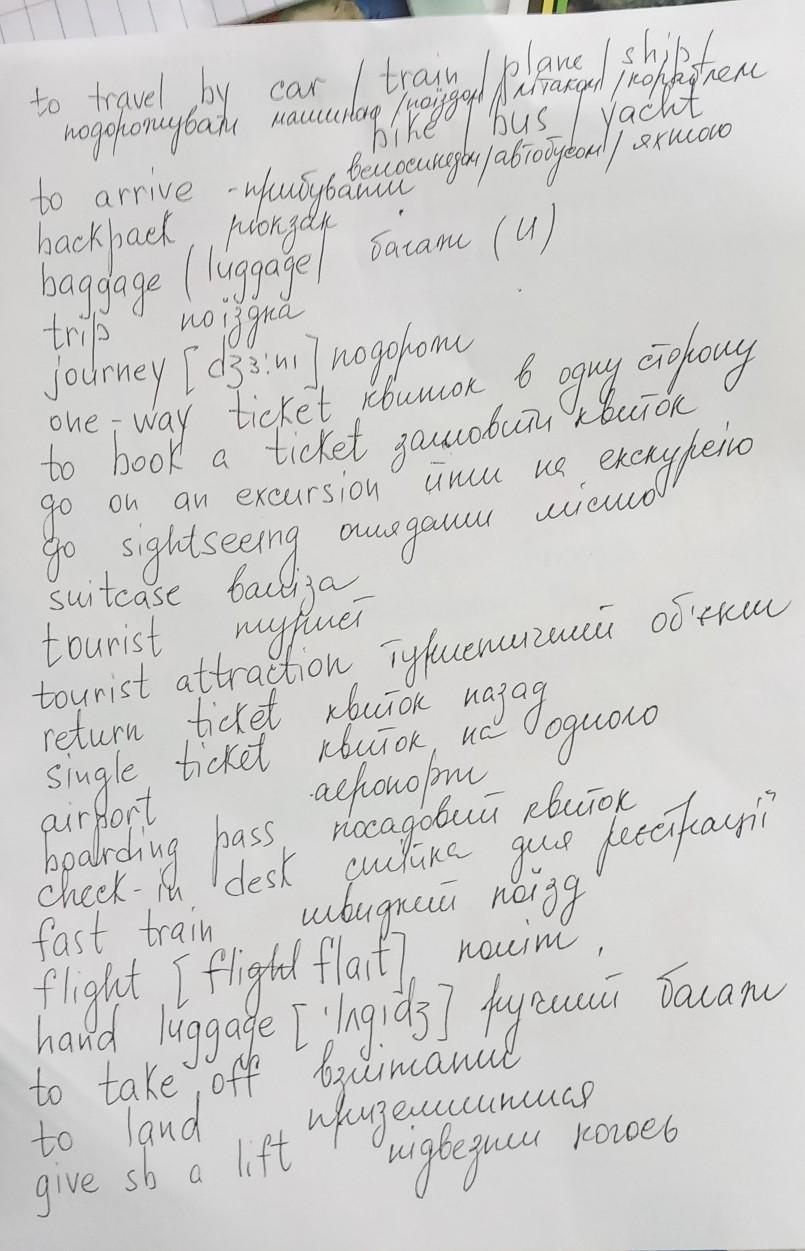 to travel by car / train / plane / ship /
подорожувати машиною / поїздом / літаком / кораблем
bike / bus / yacht
велосипедом / автобусом / яхтою
to arrive - прибувати
backpack рюкзак
baggage (luggage) багаж (U)
trip поїздка
journey [dʒɜ:nɪ] подорож
one-way ticket квиток в одну сторону
to book a ticket замовити квиток
go on an excursion йти на екскурсію
go sightseeing оглядати місто
suitcase валіза
tourist турист
tourist attraction туристичний об'єкт
return ticket квиток назад
single ticket квиток на одного
airport аеропорт
boarding pass посадовий квиток
check-in desk стійка для реєстрації
fast train швидкий поїзд
flight [flight flaɪt] політ,
hand luggage ['lʌgɪdʒ] ручний багаж
to take off взлітати
to land приземлитися
give sb a lift підвезти когось